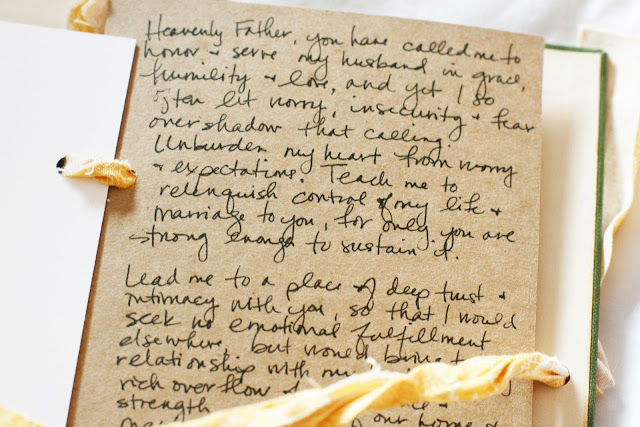 Heavenly Father, you have called me to
honor + serve my husband in grace,
humility + love, and yet I so
often let worry, insecurity + fear
overshadow that calling.
Unburden my heart from worry
+ expectations. Teach me to
relenquish control of my life +
marriage to you, for only you are
strong enough to sustain it.
Lead me to a place of deep trust +
intimacy with you, so that I would
seek no emotional fulfillment
elsewhere but would bring
relationship with
rich overflow
strength
our home +